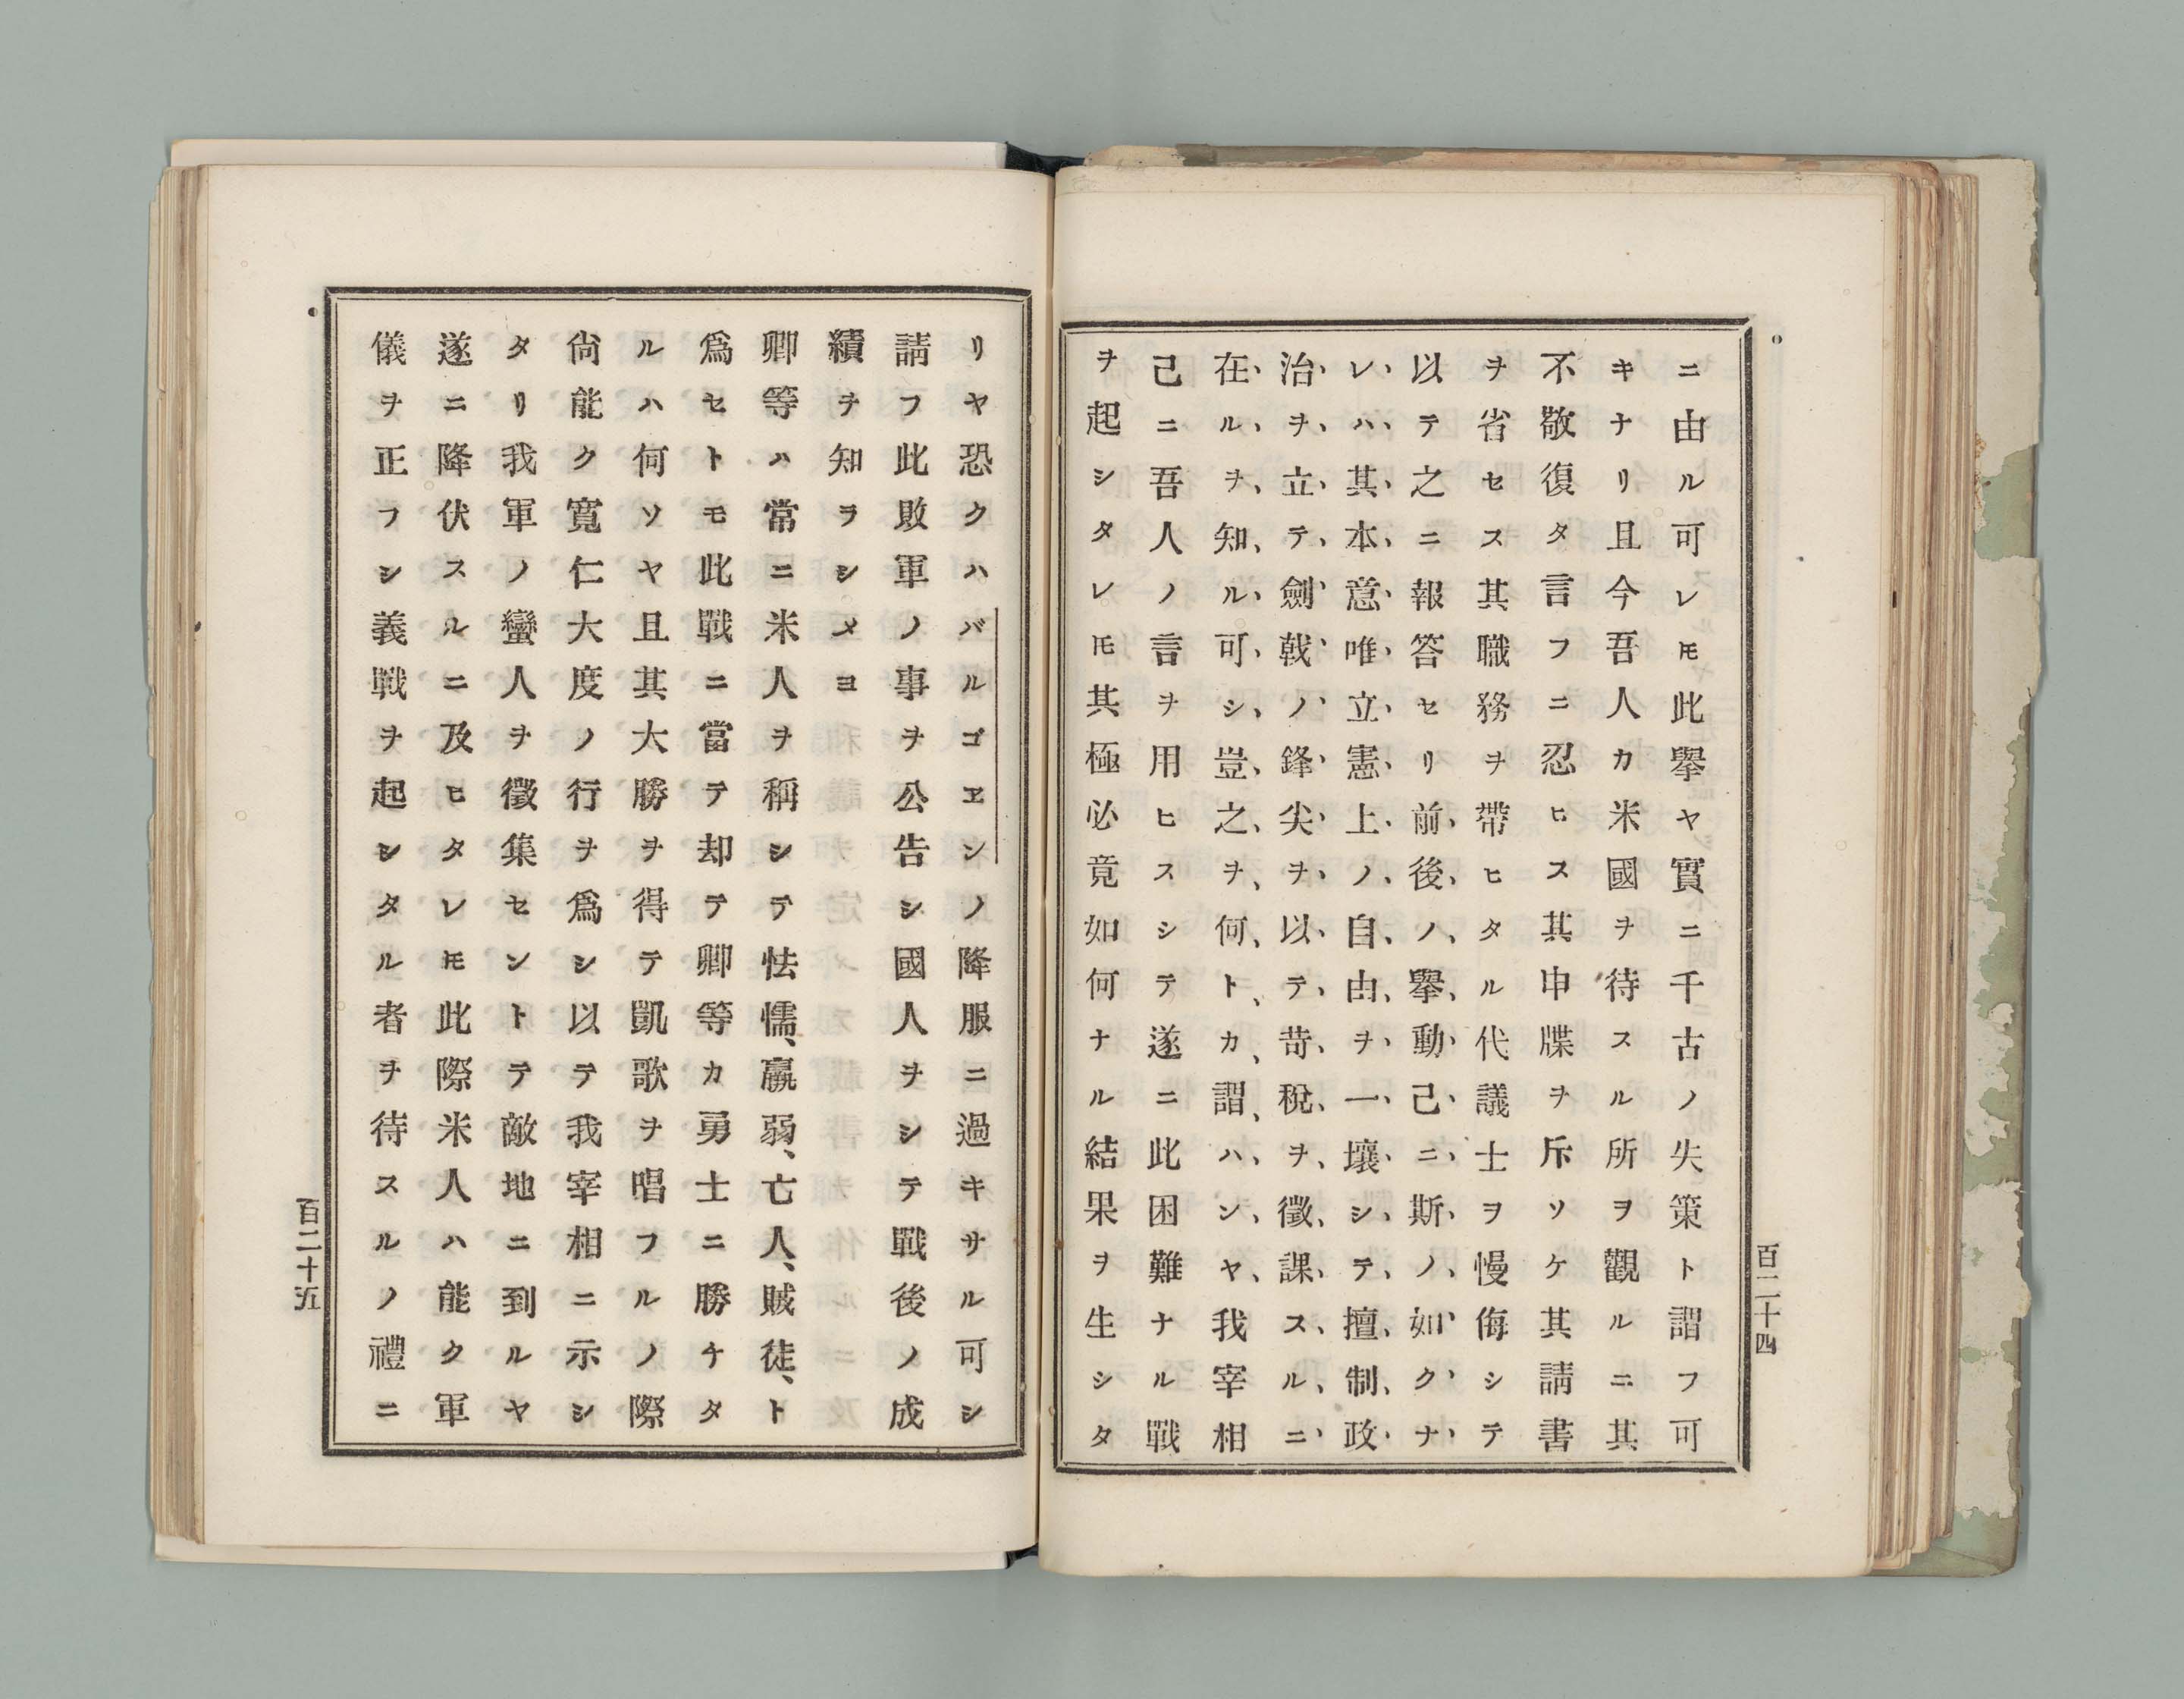 ニ由ル可レ𪜈此擧ヤ實ニ千古ノ失策ト謂フ可
キナリ且今吾人カ米國ヲ待スル所ヲ觀ルニ其
不敬復タ言フニ忍ヒス其申牒ヲ斥ソケ其請書
ヲ省セス其職務ヲ帶ヒタル代議士ヲ慢侮シテ
以テ之ニ報答セリ前、後、ノ、擧、動、己、ニ、斯、ノ、如、ク、ナ、
レ、ハ、其、本、意、唯、立、憲、上、ノ、自、由、ヲ、一、壞、シ、テ、擅、制、政、
治、ヲ、立、テ、劍、戟、ノ、鋒、尖、ヲ、以、テ、苛、稅、ヲ、徵、課、ス、ル、ニ、
在、ル、ヲ、知、ル、可、シ、豈、之、ヲ、何、ト、カ、謂、ハ、ン、ヤ、我宰相
己ニ吾人ノ言ヲ用ヒスシテ遂ニ此困難ナル戰
ヲ起シタレ𪜈其極必竟如何ナル結果ヲ生シタ
百二十四
リヤ恐クハバルゴヱンノ降服ニ過キサル可シ
請フ此敗軍ノ事ヲ公告シ國人ヲシテ戰後ノ成
績ヲ知ラシメヨ
卿等ハ常ニ米人ヲ稱シテ怯懦、羸弱、亡人、賊徒、ト
爲セトモ此戰ニ當テ却テ卿等カ勇士ニ勝ケタ
ルハ何ソヤ且其大勝ヲ得テ凱歌ヲ唱フルノ際
尙能ク寬仁大度ノ行ヲ爲シ以テ我宰相ニ示シ
タリ我軍ノ蠻人ヲ徵集セントテ敵地ニ到ルヤ
遂ニ降伏スルニ及ヒタレ𪜈此際米人ハ能ク軍
儀ヲ正フシ義戰ヲ起シタル者ヲ待スルノ禮ニ
百二十五